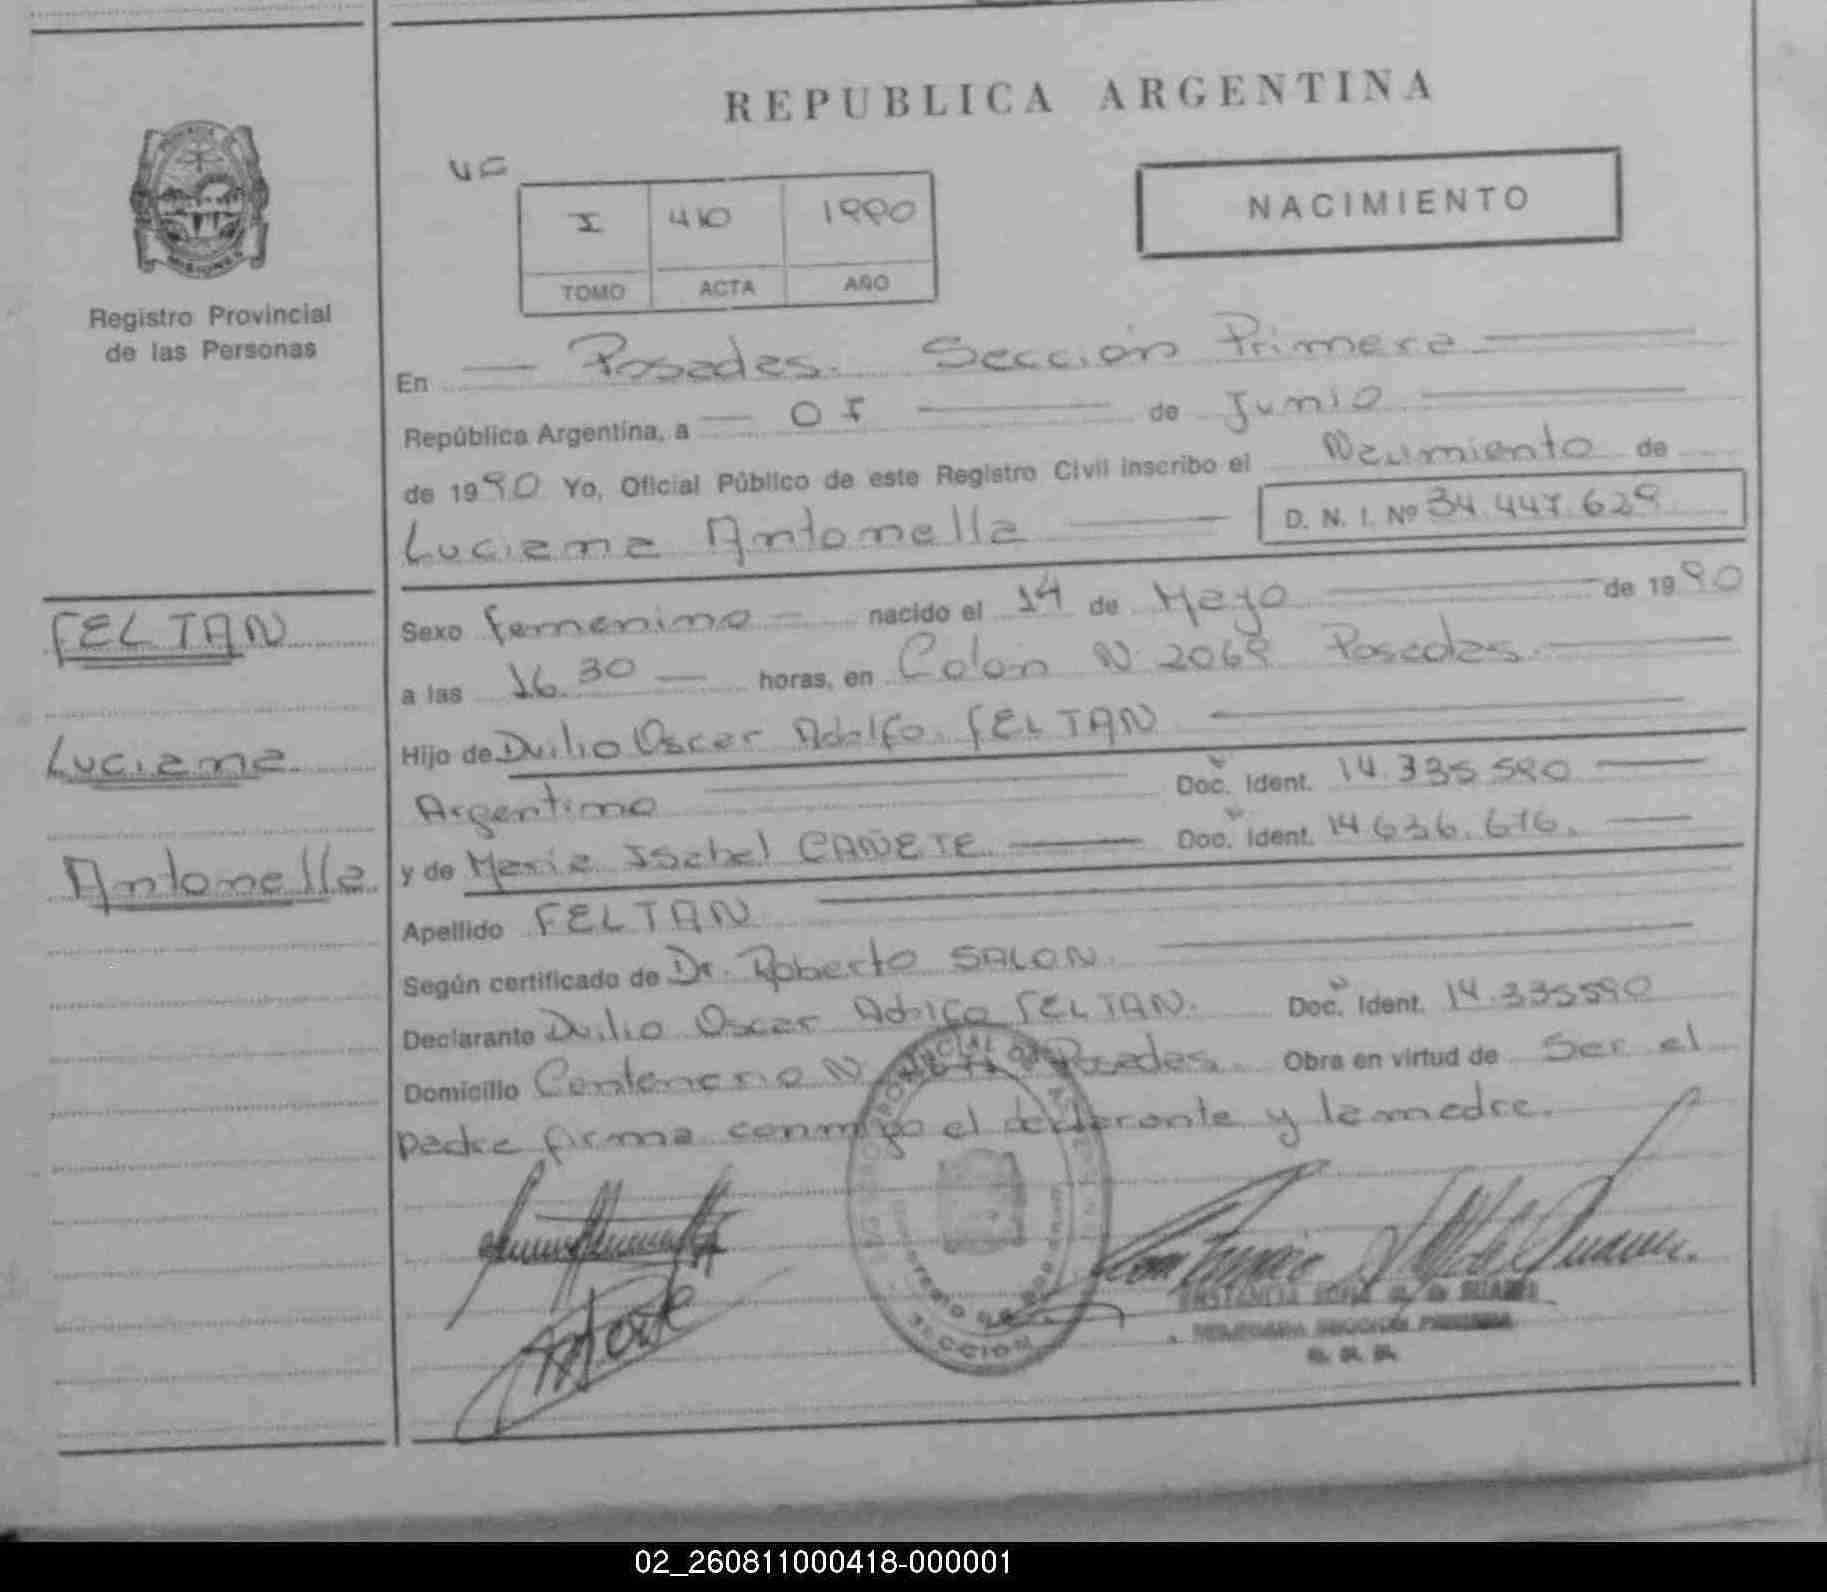 REPUBLICA ARGENTINA
MISIONES
Registro Provincial
de las Personas
NACIMIENTO
I 410 1990
TOMO ACTA AÑO
En Posadas. Sección Primera
República Argentina, a 01 de Junio
de 1990 Yo, Oficial Público de este Registro Civil inscribo el Nacimiento de
Luciana Antonella D. N. I. Nº 34.447.629
FELTAN
Luciana
Antonella
Sexo femenino nacido el 14 de Mayo de 1990
a las 16.30 horas, en Colón N 2069 Posadas
Hijo de Duilio Oscar Adolfo FELTAN
Argentino Doc. Ident. 14.335.590
y de Maria Isabel CAÑETE Doc. Ident. 14.636.616.
Apellido FELTAN
Según certificado de Dr. Roberto SALON.
Declarante Duilio Oscar FELTAN. Doc. Ident. 14.335590
Domicilio Centenario N Posadas. Obra en virtud de Ser el
padre firma conmigo el declarante y la madre.
SECCION
02_260811000418-000001